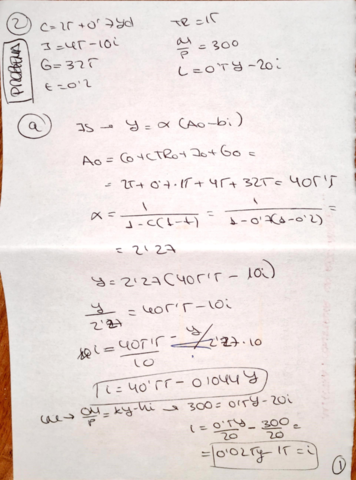 ② C=25+0'7yd TR=15
PROBLEMA
I=45-10i M/P=300
G=325 L=0'5y-20i
t=0'2
ⓐ IS → y=α(A0-bi)
A0=C0+cTR0+I0+G0=
=25+0'7·15+45+325=405'5
α=1/(1-c(1-t))=1/(1-0'7(1-0'2))=
=2'27
y=2'27(405'5-10i)
y/2'27=405'5-10i
i=405'5/10-y/2'27·10
i=40'55-0'044y
LM→M/P=ky-hi→300=0'5y-20i
i=0'5y/20-300/20=
=0'025y-15=i
①